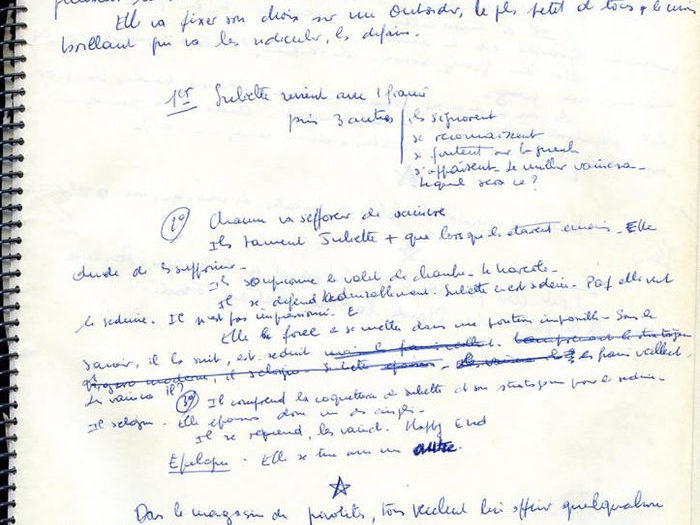 Elle va fixer son choix sur un outsider, le plus petit de tous, le moins
brillant qui va les ridiculer, les défaire.
1er Juliette revient avec 1 fiancé
puis 3 autres
ils s'ignorent
se reconnaissent
se foutent sur la gueule
s'affaissent. Le meilleur vaincra.
Lequel sera ce ?
2° Chacun va s'efforcer de vaincre
Ils tiennent Juliette + que lorsqu'ils étaient ennemis. Elle
de 3
Ils soupçonnent le valet de chambre. Le harcèle.
Il se défend. Juliette s'est séduire. Paf elle veut
le séduire. Il n'est pas impressionné. E
Elle le force à se mettre dans une position impossible. Sans le
savoir, il la suit, est séduit
il Juliette
Les vaincra-t-il ? 3° Il comprend la coquetterie de Juliette et son stratagème pour le séduire.
Il s'éloigne. Elle épousera donc un des cinglés.
Il se reprend, les vainc. Happy End
Epilogue. Elle se tire avec un autre.
Dans le magasin de tous veulent lui offrir quelque chose